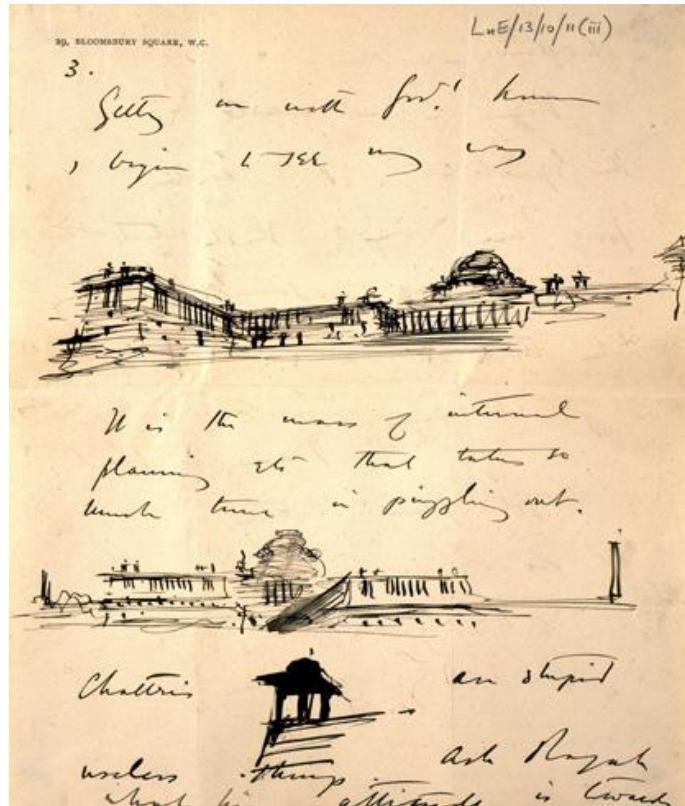 29, BLOOMSBURY SQUARE, W.C.
LuE/13/10/11(iii)
3.
Getting on with Govt House
I begin to SEE my way
It is the mass of internal
planning etc that takes so
much time in puzzling out.
Chattris are stupid
useless things. Ask Rajah
what his attitude is towards